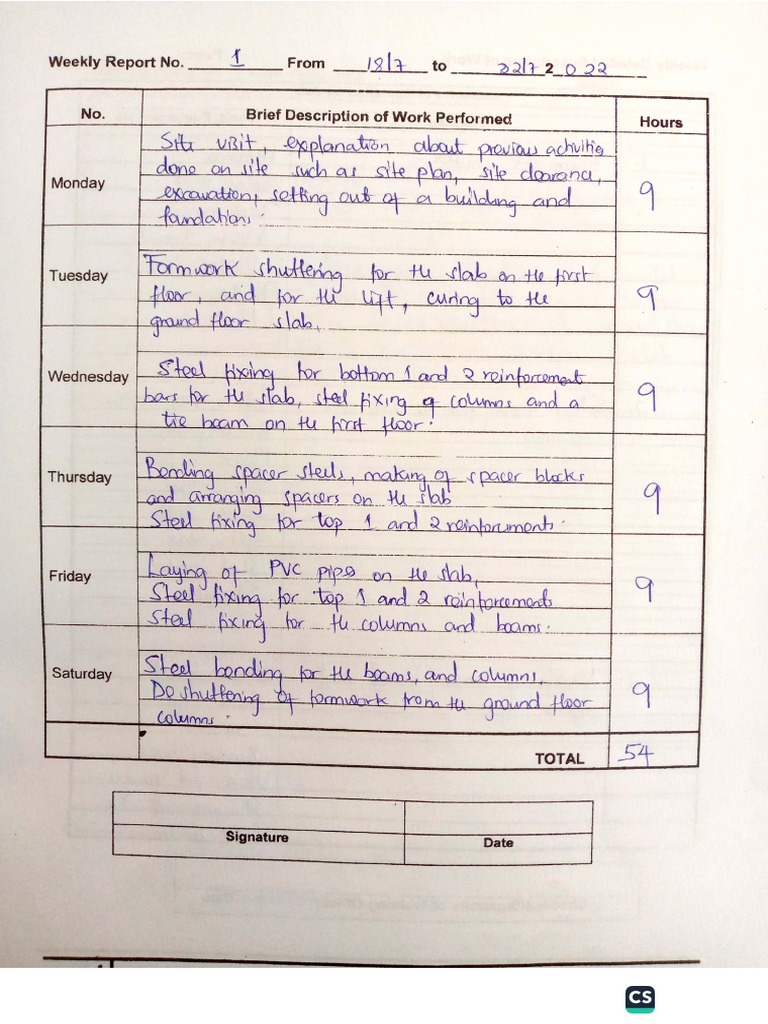 Weekly Report No. 1 From 18/7 to 22/7 2022
No. Brief Description of Work Performed Hours
Monday
Site visit, explanation about previous activities
done on site such as site plan, site clearance,
excavation, setting out of a building and
foundations.
9
Tuesday
Formwork shuttering for the slab on the first
floor, and for the lift, curing to the
ground floor slab.
9
Wednesday
Steel fixing for bottom 1 and 2 reinforcement
bars for the slab, steel fixing of columns and a
tie beam on the first floor.
9
Thursday
Bending spacer steels, making of spacer blocks
and arranging spacers on the slab
Steel fixing for top 1 and 2 reinforcements.
9
Friday
Laying of PVC pipes on the slab,
Steel fixing for top 1 and 2 reinforcements
Steel fixing for the columns and beams.
9
Saturday
Steel bending for the beams, and columns,
De shuttering of formwork from the ground floor
columns.
9
TOTAL 54
Signature Date
CS